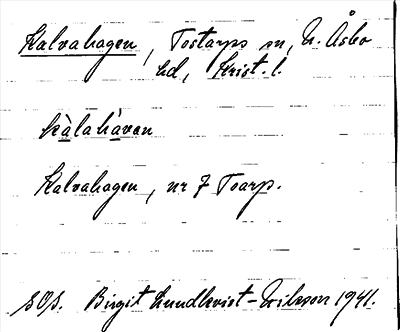 Kalvahagen, Tostarps sn, N. Åsbo
hd, Krist. l.
kàlahàvan
Kalvahagen, nr 7 Toarp.
SOÅ. Birgit Lundkvist-Nilsson 1941.